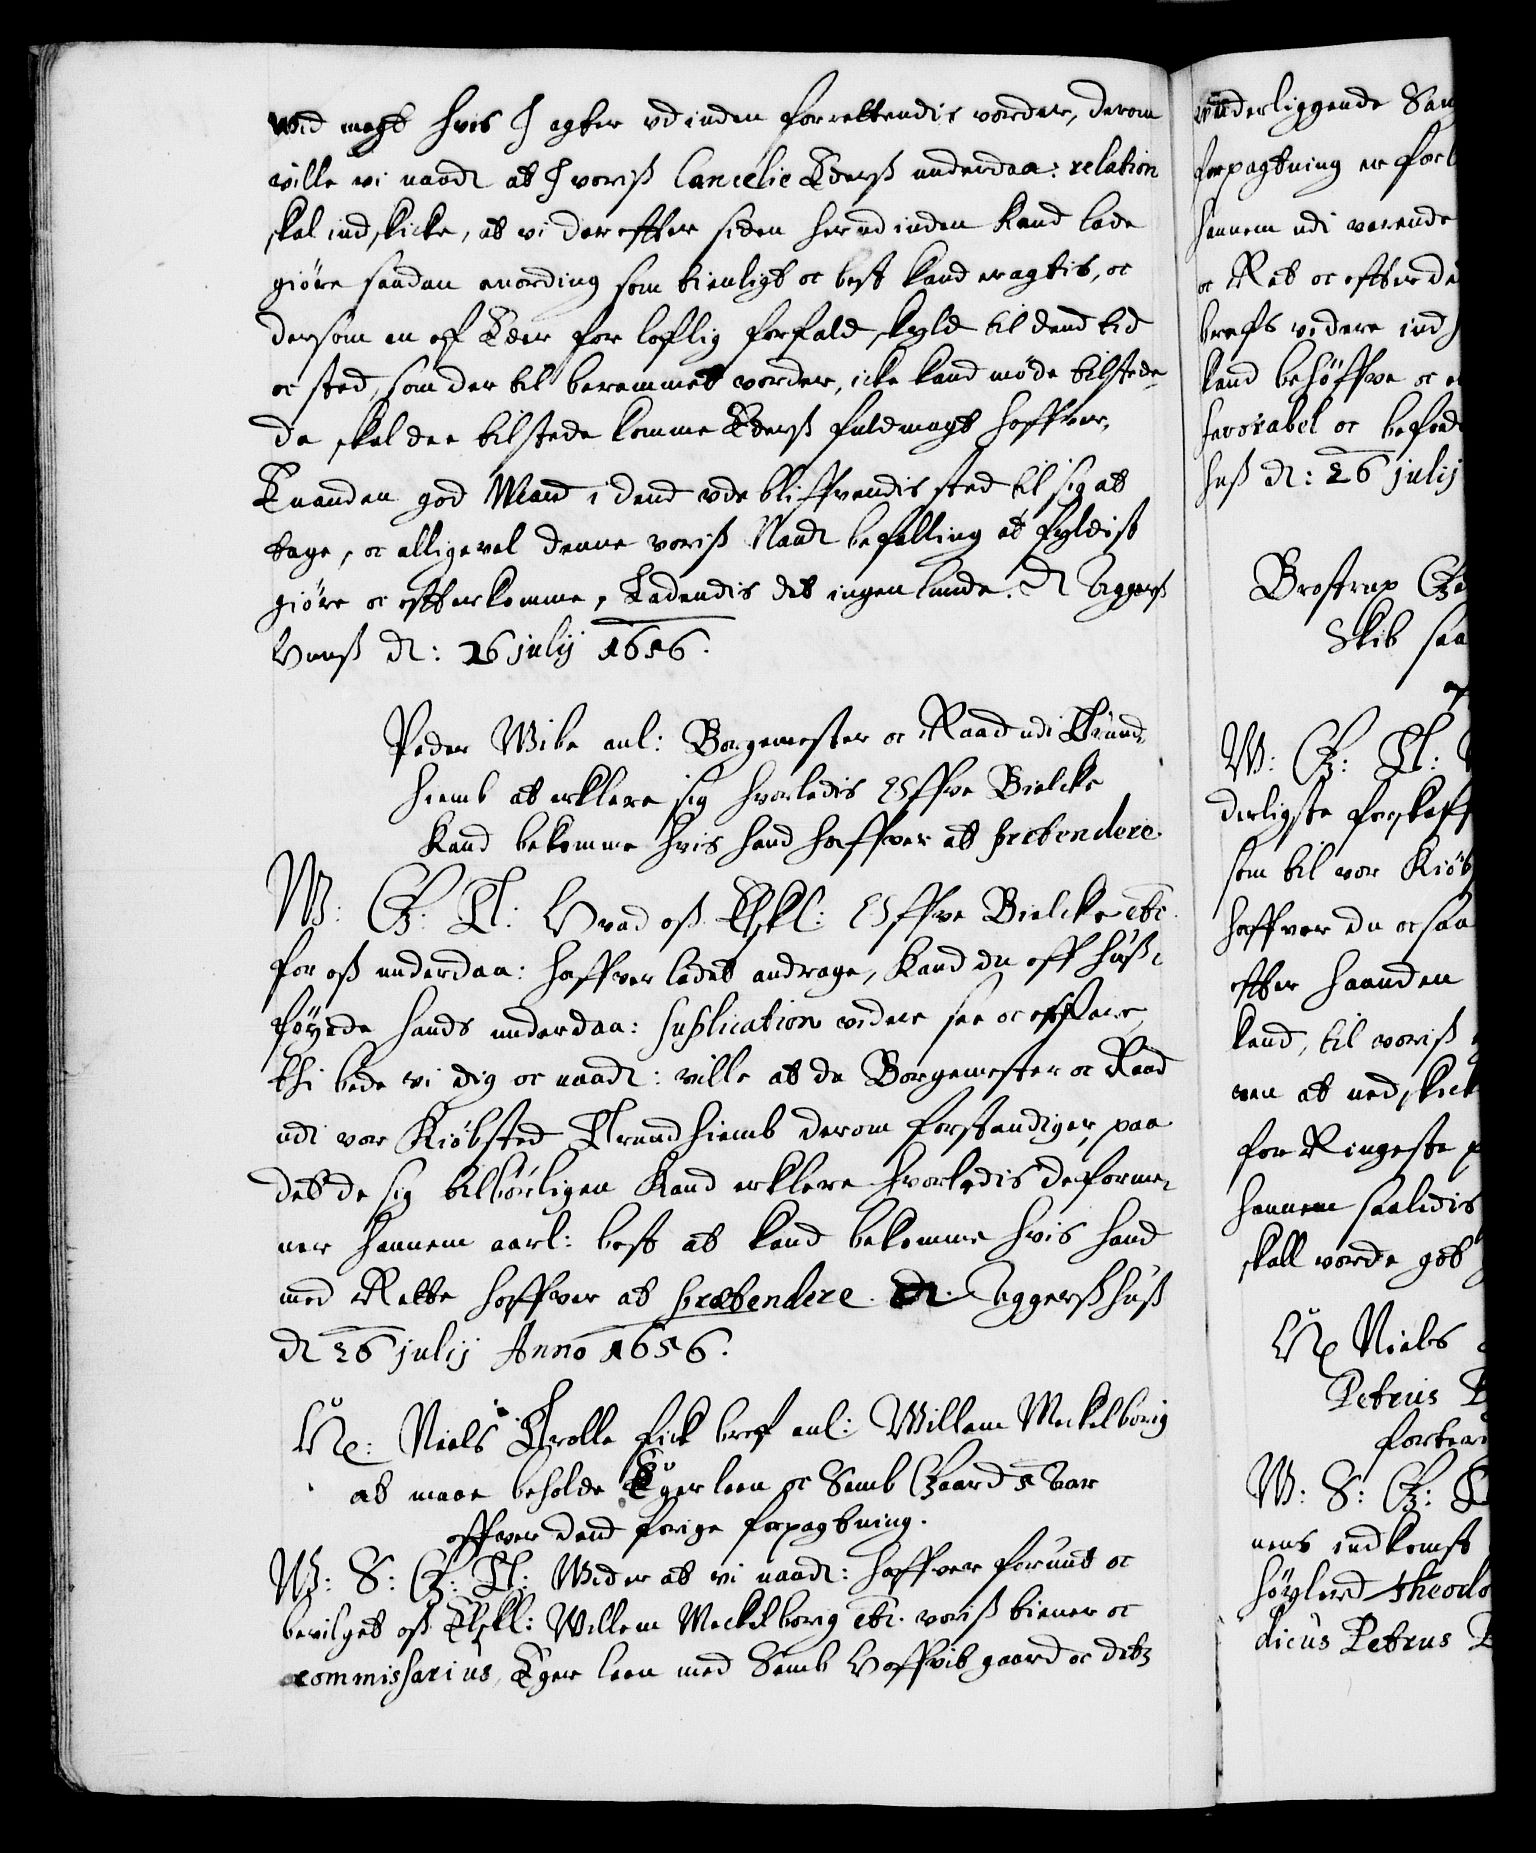 ved magt hvis I agter udinden forrettendis vorder, derom
ville vi naadl at I voriß Cancelie Ederß underdaa: relation
skal indskicke, at vi derefter siden herudinden kand lade
giöre saadan anording som tienligt oc best kand eragtis, oc
dersom en af Eder for loflig forfald skyld til dend tid
oc sted, som der til berammet vorder, icke kand möde tilstede
da skal den tilstede komme Ederß fuldmagt haffver,
En anden god Mand i dend udebliffvendis sted til sig at
tage, oc alligevel denne voriß Naadl befalling at fyldist
giöre oc efterkomme, Ladendis det ingenlunde. Dl Aggerß
Huuß dl: 26 julij 1656.
Peder Wibe anl: Borgemester oc Raad udi Trund
hiemb at erklere sig hvorledis Uffve Bielcke
kand bekomme hvis hand haffver at prætendere
W: G: T: Hvad oß Elskl: Uffve Bielcke etc.
for oß underdaa: haffver ladet andrage, kand du aff huß
föyede hands underdaa: suplication videre see oc erfare,
thi bede vi dig oc naadl: ville at du Borgemester oc Raad
udi vor Kiöbsted Trundhiemb derom forstendiger, paa
det de sig tilbörligen kand erklere hvorledis de forme
ner hannem aarl: best at kand bekomme hvis hand
med Rette haffver at prætendere. Dl. Aggerßhuß
dl 26 julij Anno 1656.
Hr: Niels Trolle fick bref anl: Willem Meckelborig
at maae beholde Eger leen oc Semb Gaard 5 Aar
offver dend forige forpagtning.
W: S: G: T: Wider at vi naadl: haffver forunt oc
bevilget oß Elskl: Willem Meckelborig etc. voriß tiener oc
commissarius, Eger leen med Semb Hoffvit gaard oc detz
underliggende
forpagtning er
hannem udi verende
oc Ret oc efter
brefs videre
kand behöffve oc
favorabel oc
huß dl: 26 julij
Brostrup
Skib saa
W: G: T:
derligste
som til vor
haffver du ocsaa
efter haanden
kand, til voriß
ven at nedskick
for Ringeste
hannem saaledis
skall vorde got
Hr Niels
Petrus
W: S: G:
nens indkomst
höylerd
dicus Petrus